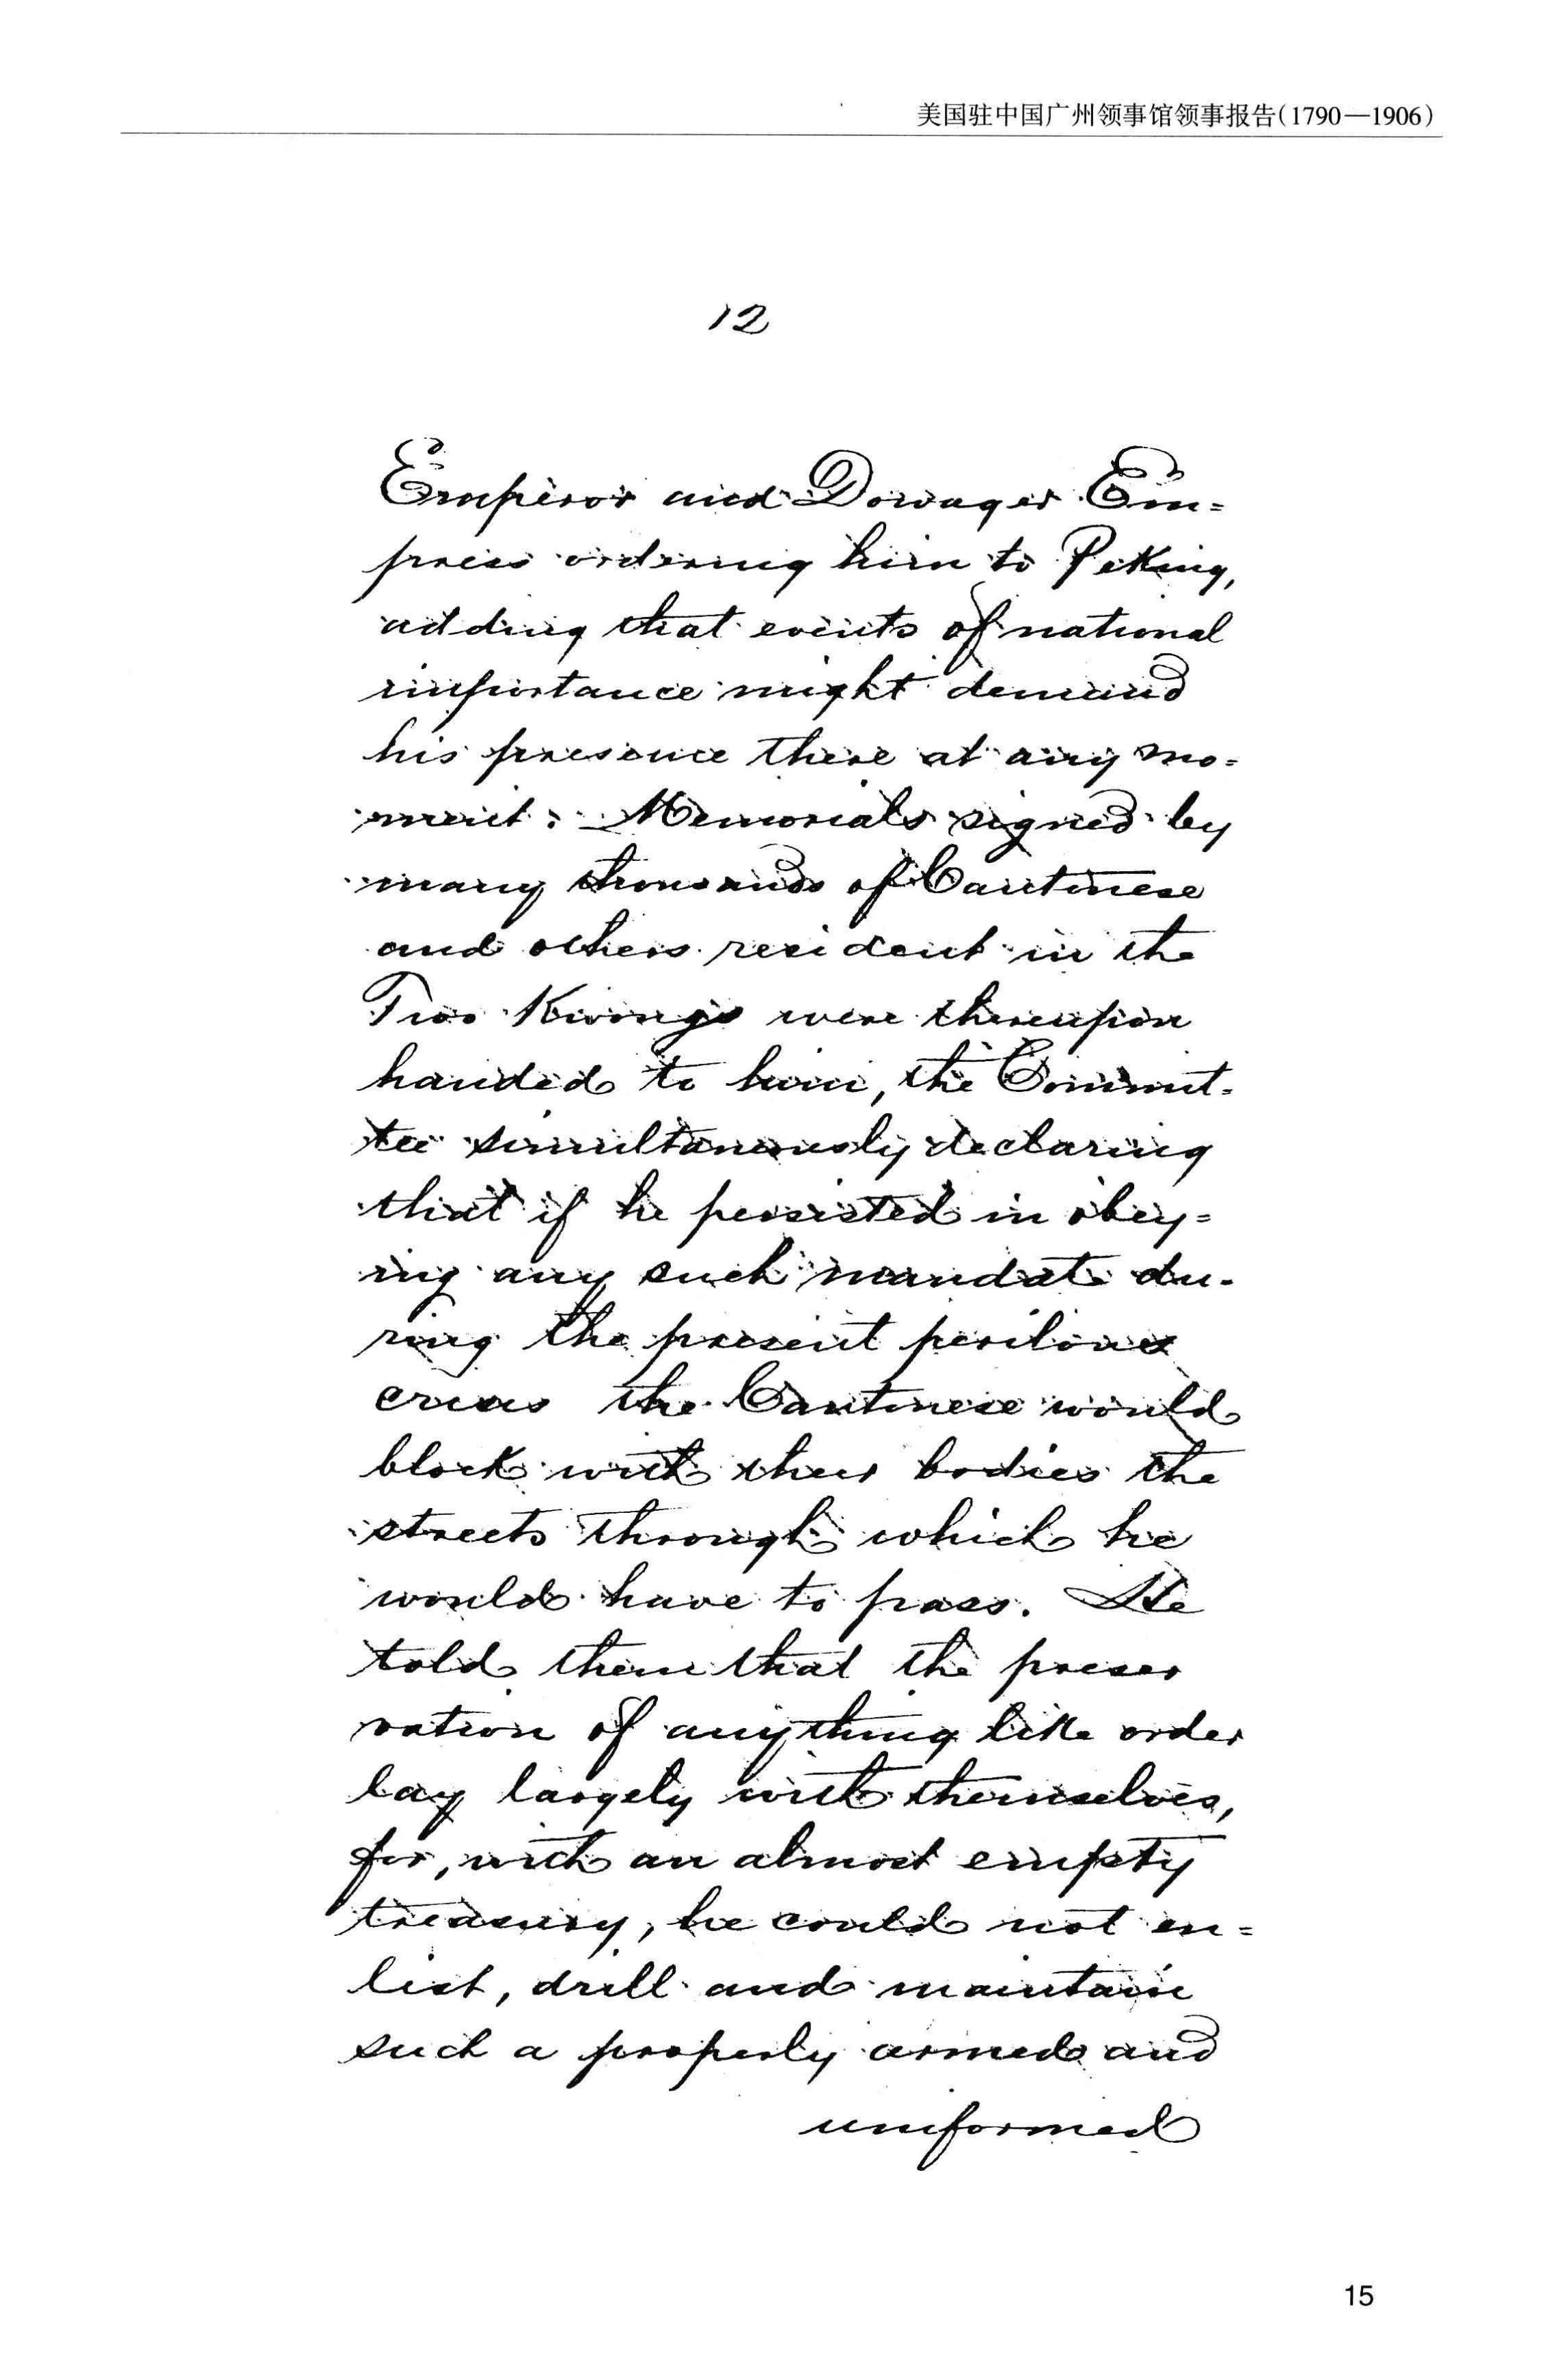 美国驻中国广州领事馆领事报告(1790—1906)
12
Emperor and Dowager Em=
press ordering him to Peking,
adding that events of national
importance might demand
his presence there at any mo=
ment. Memorials signed by
many thousands of Cantonese
and others resident in the
Two Kwongs were thereupon
handed to him, the Commit=
tee simultaneously declaring
that if he persisted in obey=
ing any such mandate du-
ring the present perilous
crisis the Cantonese would
block with their bodies the
streets through which he
would have to pass. He
told them that the preser
vation of anything like order
lay largely with themselves,
for, with an almost empty
treasury, he could not en=
list, drill and maintain
such a properly armed and
uniformed
15